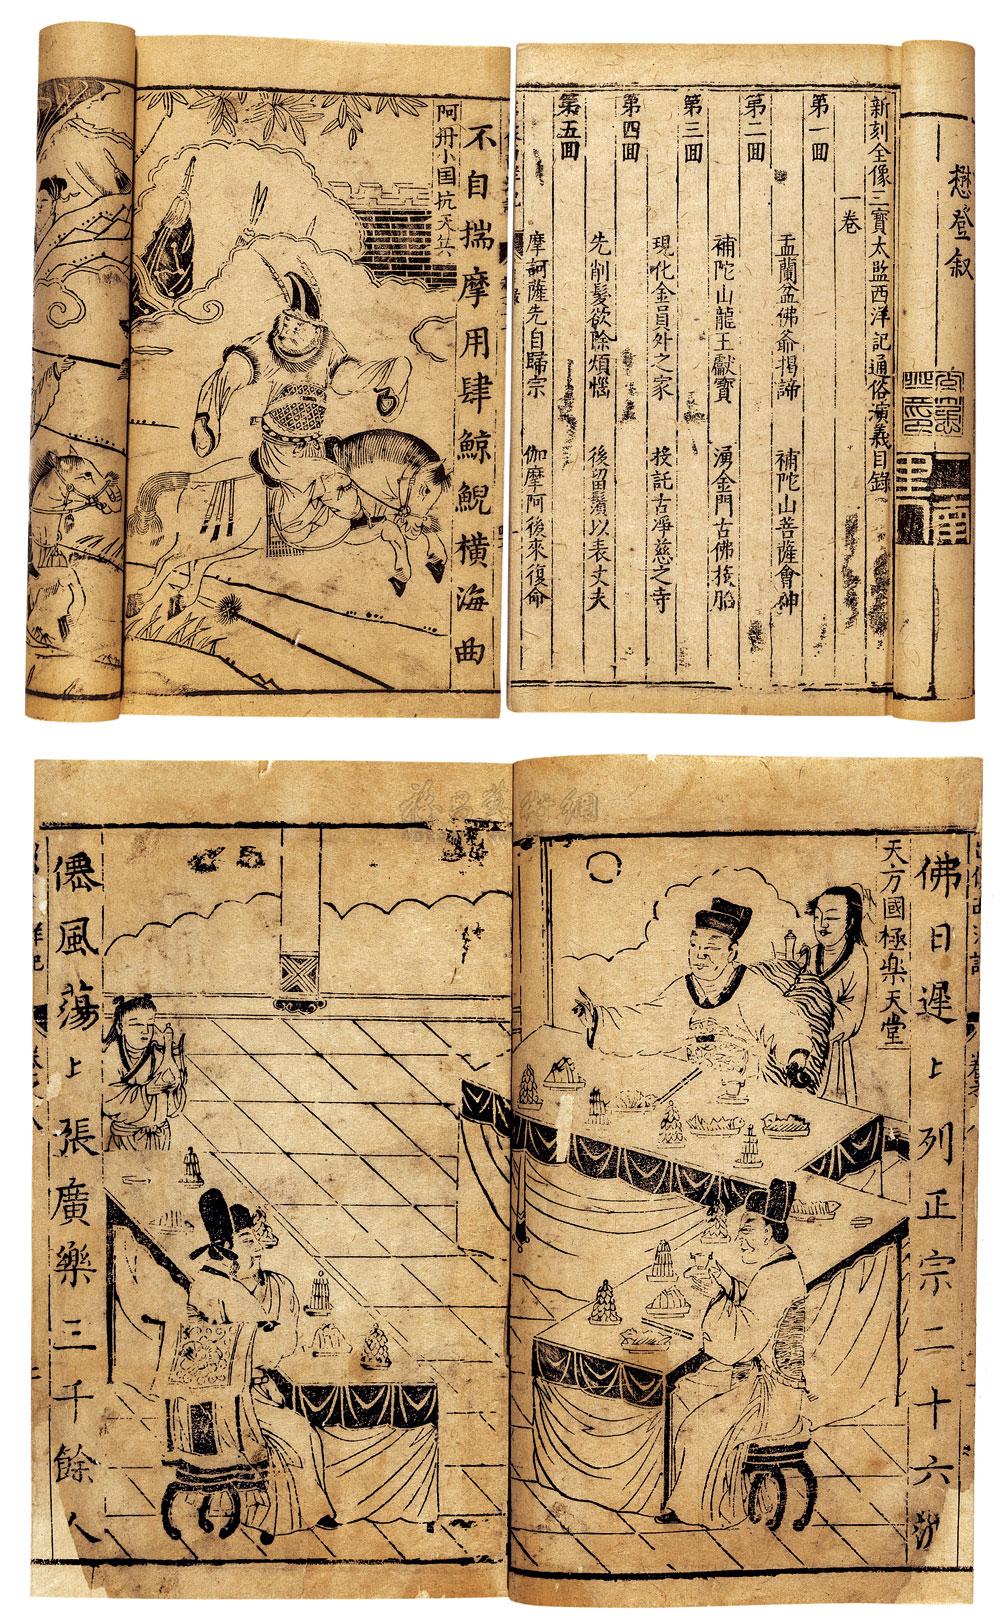 懋登叙
新刻全像三寶太監西洋記通俗演義目錄
一卷
第一囬 盂蘭盆佛爺揭諦 補陀山菩薩會神
第二囬 補陀山龍王獻寶 湧金門古佛投胎
第三囬 現化金員外之家 投託古淨慈之寺
第四囬 先削髮欲除煩惱 後留鬚以表丈夫
第五囬 摩訶薩先自歸宗 伽摩阿後來復命
不自揣摩用肆鯨鯢横海曲
阿丹小国抗天兵
佛日遲上列正宗二十六
天方國極楽天堂
僊風蕩上張廣樂三千餘人